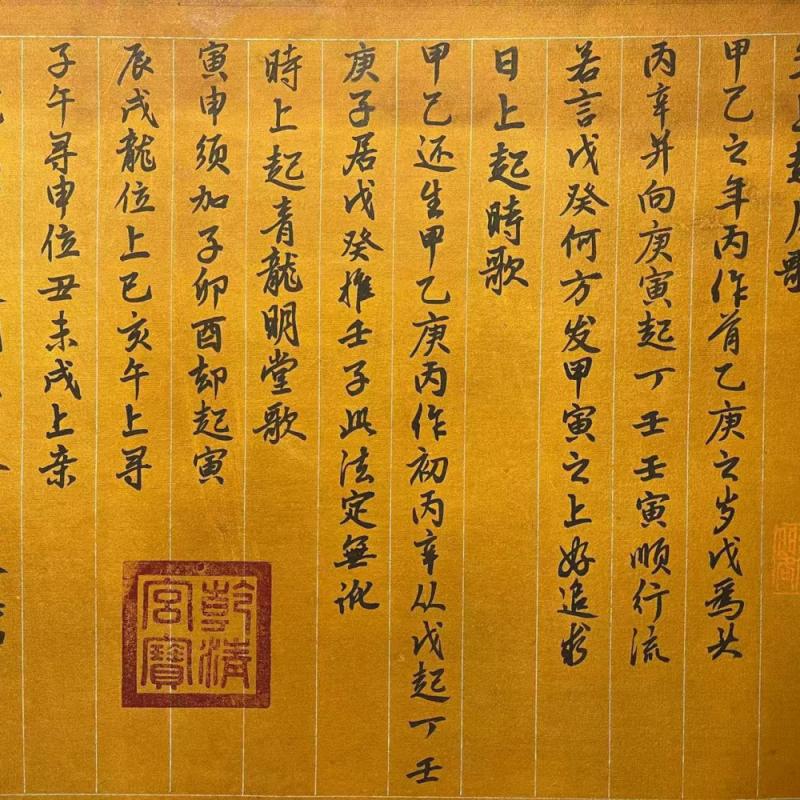 上起月歌
甲己之年丙作首乙庚之岁戊為头
丙辛并向庚寅起丁壬壬寅順行流
若言戊癸何方发甲寅之上好追求
日上起時歌
甲己还生甲乙庚丙作初丙辛从戊起丁壬
庚子居戊癸推壬子此法定無訛
時上起青龍明堂歌
寅申须加子卯酉却起寅
辰戌龍位上巳亥午上寻
子午寻申位丑未戌上亲
乾清
宮寶